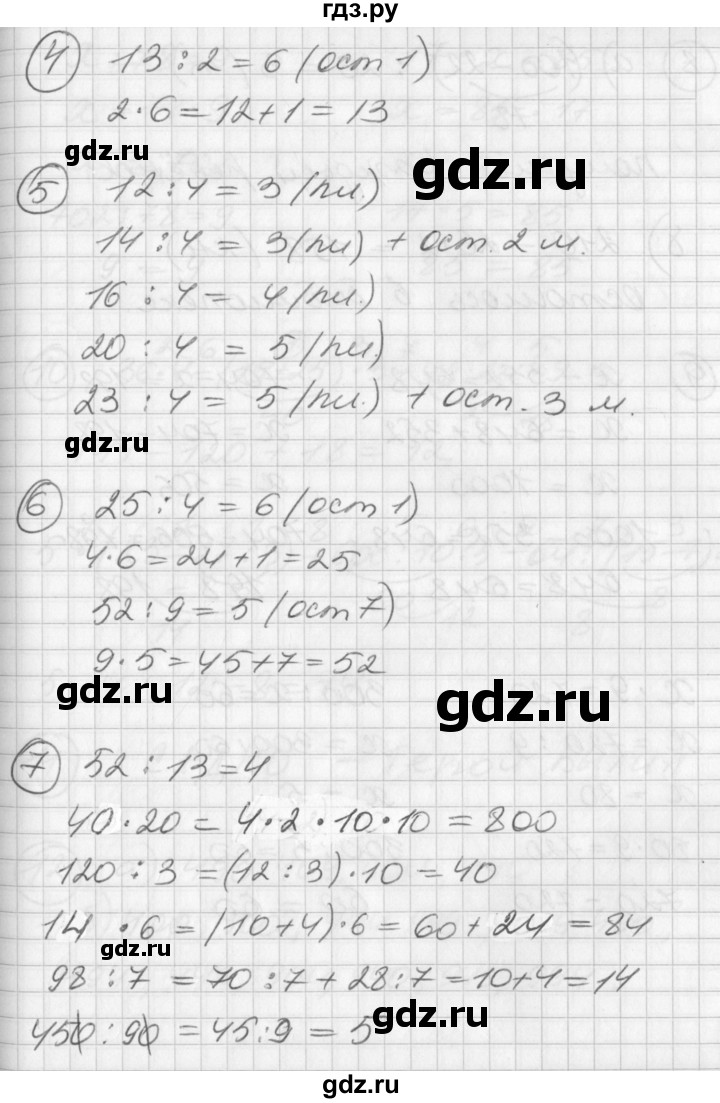 гдз.ру
4 13 : 2 = 6 (ост 1)
2·6 = 12 + 1 = 13
gdz.ru
gdz.ru
5 12 : 4 = 3 (пи.)
14 : 4 = 3 (пи) + ост. 2 м.
16 : 4 = 4 (пи.)
20 : 4 = 5 (пи.)
23 : 4 = 5 (пи.) + ост. 3 м.
gdz.ru
6 25 : 4 = 6 (ост 1)
4·6 = 24 + 1 = 25
52 : 9 = 5 (ост 7)
9·5 = 45 + 7 = 52
gdz.ru
gdz.ru
7 52 : 13 = 4
40·20 = 4·2·10·10 = 800
120 : 3 = (12 : 3)·10 = 40
14 · 6 = (10+4)·6 = 60 + 24 = 84
gdz.ru
98 : 7 = 70 : 7 + 28 : 7 = 10+4 = 14
450 : 90 = 45 : 9 = 5
gdz.ru
gdz.ru